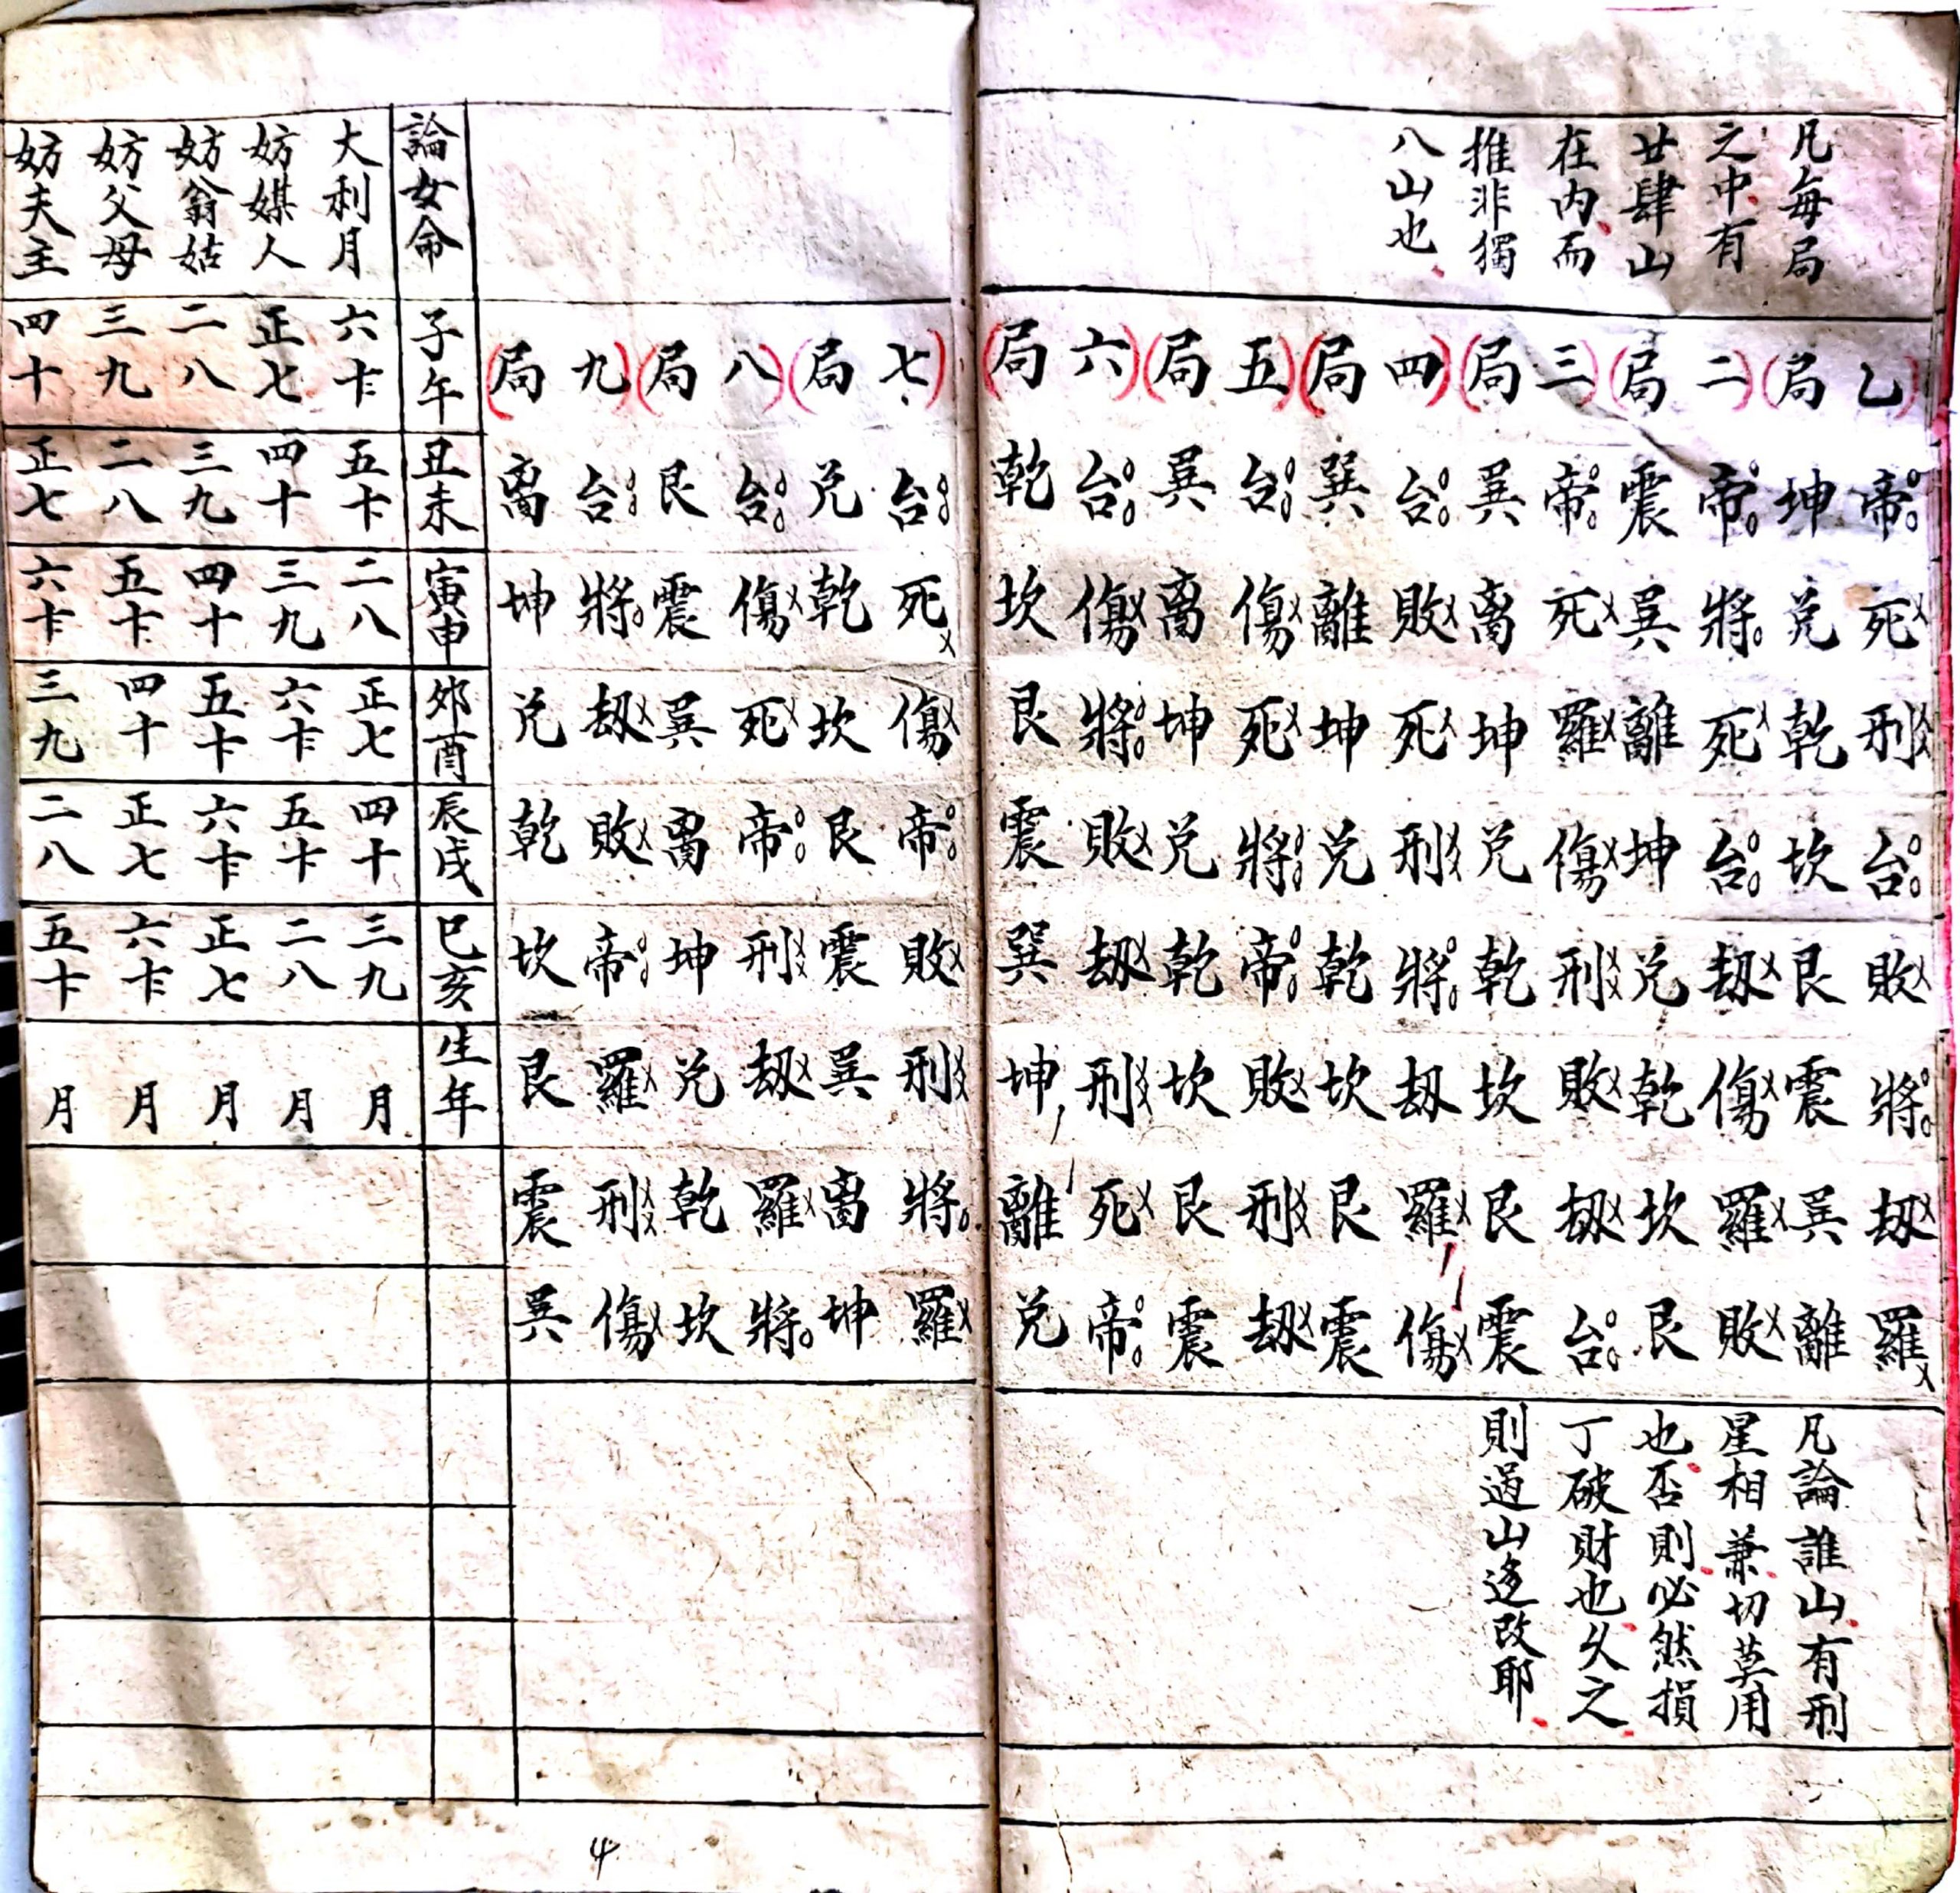 凡每局
之中有
廿肆山
在内而
推非獨
八山也
乙局
帝坤
死兑
刑乾
台坎
敗艮
將震
刼巽
羅離
二局
帝震
將巽
死離
台坤
刼兑
傷乾
羅坎
敗艮
三局
帝巽
死离
羅坤
傷兑
刑乾
敗坎
刼艮
台震
四局
台巽
敗離
死坤
刑兑
將乾
刼坎
羅艮
傷震
五局
台巽
傷离
死坤
將兑
帝乾
敗坎
刑艮
刼震
六局
台乾
傷坎
將艮
敗震
刼巽
刑坤
死離
帝兑
凡論誰山有刑
星相兼切莫用
也否則必然損
丁破財也久之
則過山逢改耶
七局
台兑
死乾
傷坎
帝艮
敗震
刑巽
將离
羅坤
八局
台艮
傷震
死巽
帝离
刑坤
刼兑
羅乾
將坎
九局
台离
將坤
刼兑
敗乾
帝坎
羅艮
刑震
傷巽
論女命 子午 丑未 寅申 郊酉 辰戌 巳亥 生年
大利月 六十 五十 二八 正七 四十 三九 月
妨媒人 正七 四十 三九 六十 五十 二八 月
妨翁姑 二八 三九 四十 五十 六十 正七 月
妨父母 三九 二八 五十 四十 正七 六十 月
妨夫主 四十 正七 六十 三九 二八 五十 月
4